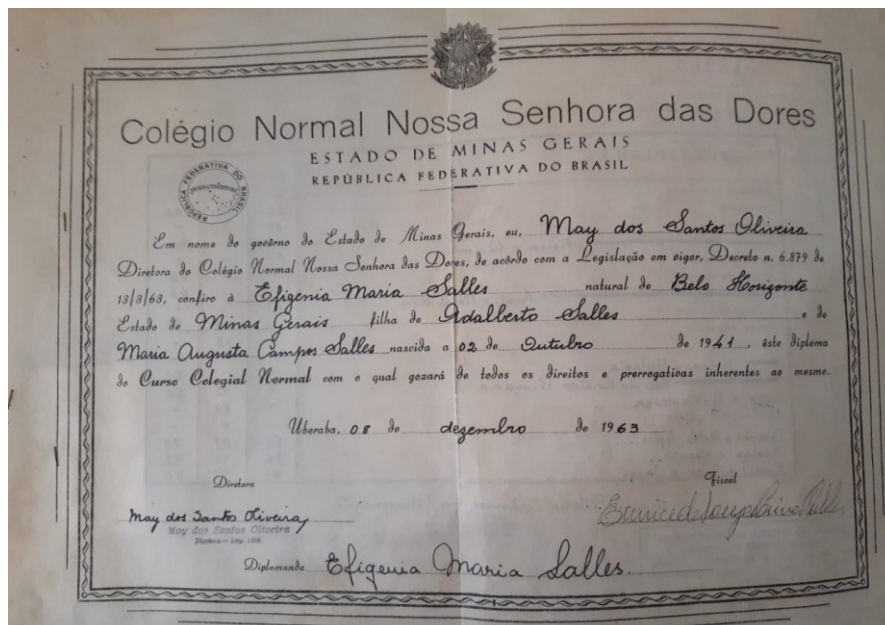 Colégio Normal Nossa Senhora das Dores
ESTADO DE MINAS GERAIS
REPÚBLICA FEDERATIVA DO BRASIL
REPÚBLICA FEDERATIVA DO BRASIL
Em nome do govêrno do Estado de Minas Gerais, eu, May dos Santos Oliveira
Diretora do Colégio Normal Nossa Senhora das Dores, de acôrdo com a Legislação em vigor, Decreto n. 6.879 de
13/3/63, confiro à Efigenia Maria Salles natural de Belo Horizonte
Estado de Minas Gerais filha de Adalberto Salles e de
Maria Augusta Campos Salles nascida a 02 de Outubro de 1941, êste diploma
do Curso Colegial Normal com o qual gozará de todos os direitos e prerrogativas inherentes ao mesmo.
Uberaba, 08 de dezembro de 1963
Diretora Fiscal
May dos Santos Oliveira Eunice de Souza
May dos Santos Oliveira
Diretora
Diplomanda Efigenia Maria Salles.